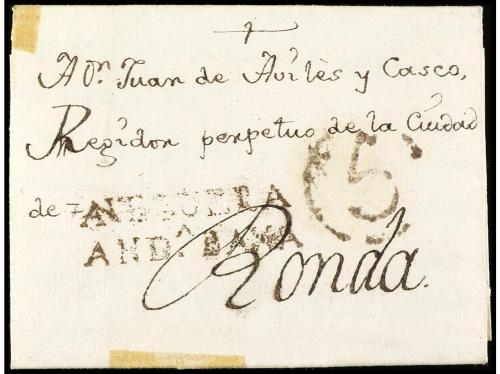 A Dn. Juan de Avilès y Casco,
Regidor perpetuo de la Ciudad
5
de
ANDA. BAXA
Ronda.